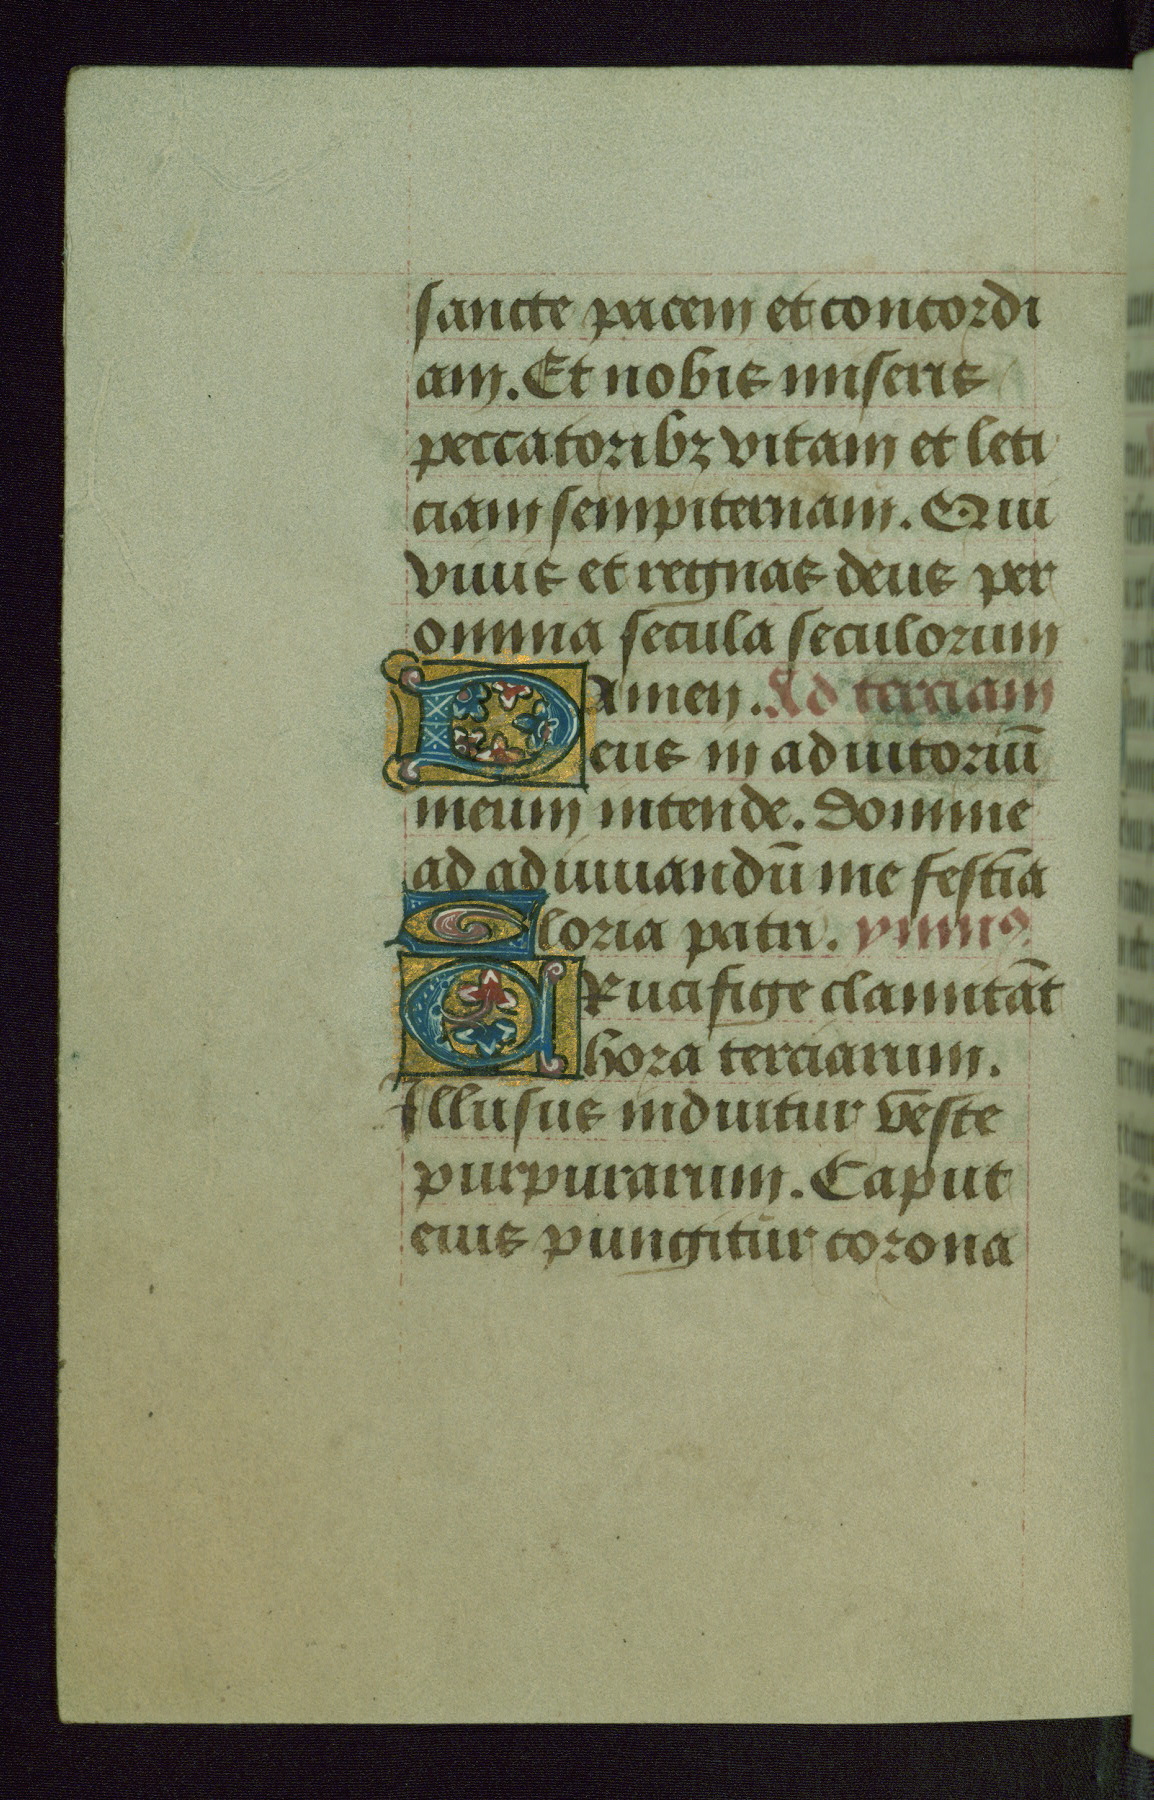 sancte pacem et concordi
am. Et nobis miseris
peccatoribz vitam et leti
ciam sempiternam. Qui
viuis et regnas deus per
omnia secula seculorum
amen. Ad terciam
Deus in adiutoriū
meum intende. Domine
ad adiuuandū me festīa
Gloria patri. ymnꝰ
CRucifige clamitāt
hora terciarum.
Illusus induitur veste
purpurarum. Caput
eius pungitur corona